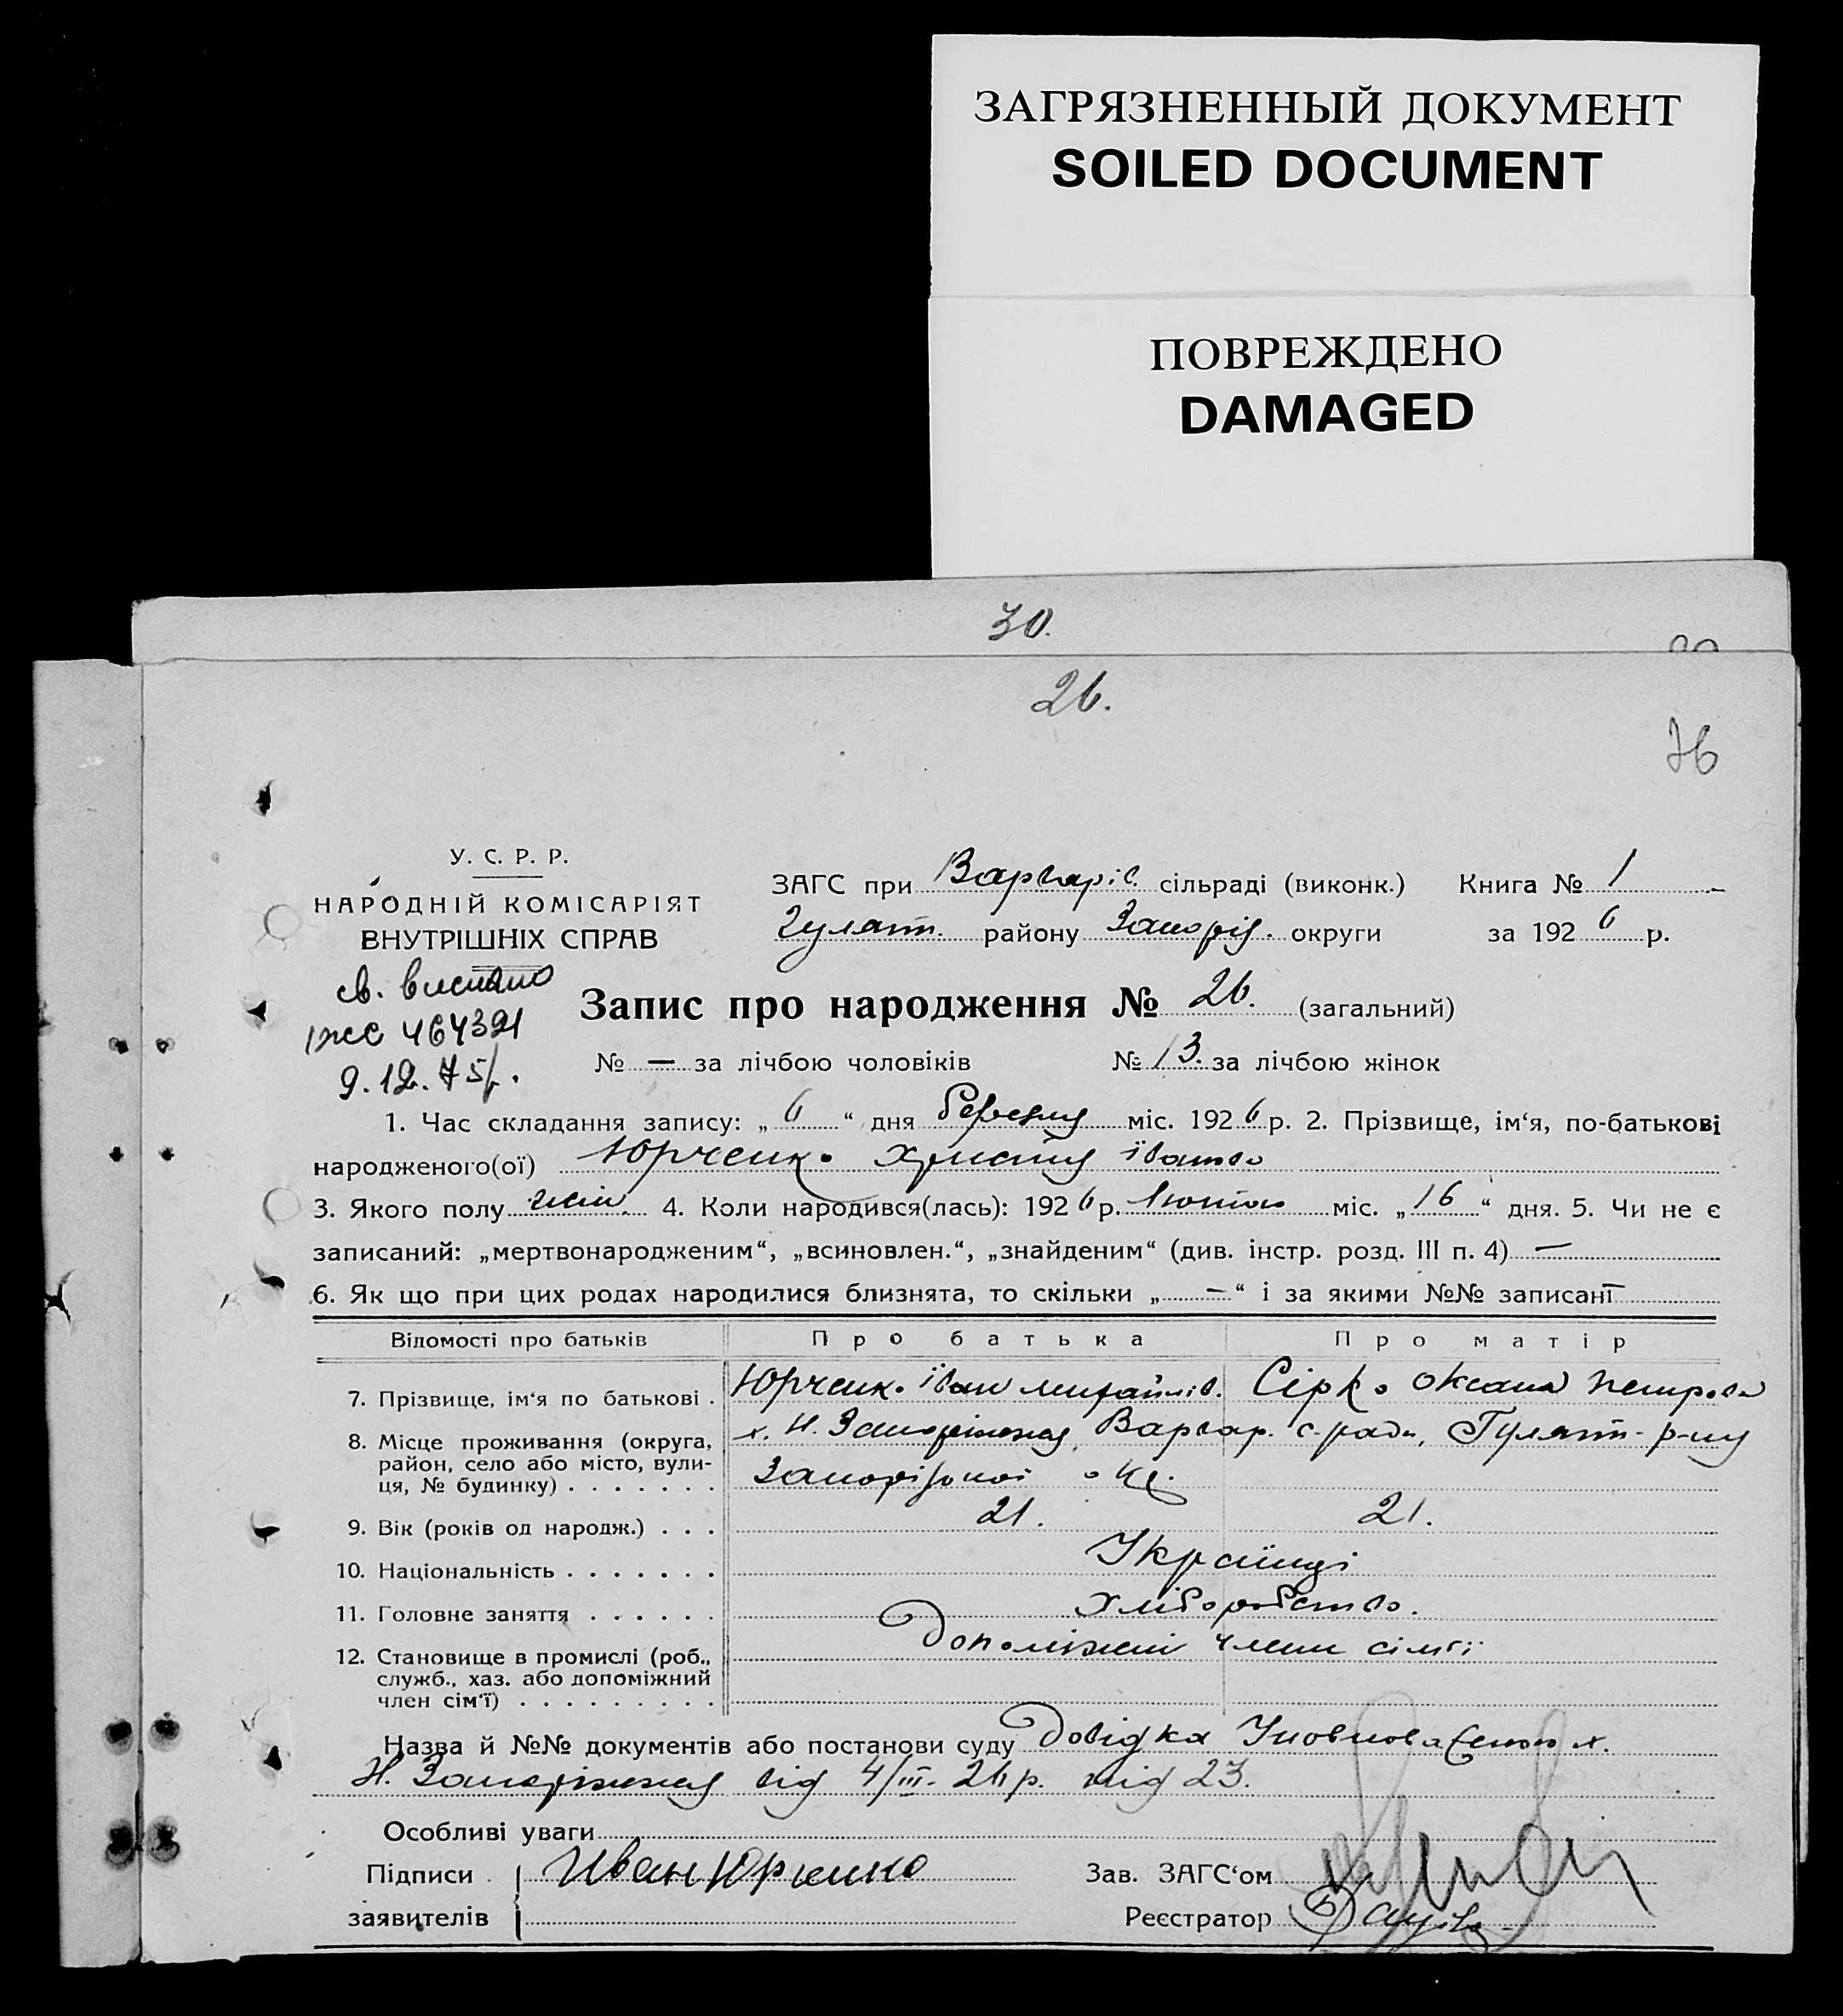 ЗАГРЯЗНЕННЫЙ ДОКУМЕНТ
SOILED DOCUMENT
ПОВРЕЖДЕНО
DAMAGED
30.
26.
У. С. Р. Р.
НАРОДНІЙ КОМІСАРІЯТ
ВНУТРІШНІХ СПРАВ
ЗАГС при Варварів. сільраді (виконк.) Книга № 1
Гуляйп. району Запоріз. округи за 1926 р.
св. виписано
Запис про народження № 26. (загальний)
9.12.75р.
№ — за лічбою чоловіків № 13. за лічбою жінок
1. Час складання запису: „ 6 “ дня березня міс. 1926 р. 2. Прізвище, ім‘я, по-батькові
народженого(ої) Юрченко Христя Іванова
3. Якого полу жін. 4. Коли народився(лась): 1926 р. лютого міс. „ 16 “ дня. 5. Чи не є
записаний: „мертвонародженим“, „всиновлен.“, „знайденим“ (див. інстр. розд. III п. 4) —
6. Як що при цих родах народилися близнята, то скільки „ — “ і за якими №№ записані
Відомості про батьків Про батька Про матір
7. Прізвище, ім‘я по батькові . Юрченко Іван Михайлів. Сірко Оксана Петрова
8. Місце проживання (округа, х. Н. Запоріжжя, Варвар. с-ради, Гуляйп- р-ну
район, село або місто, вули-
ця, № будинку) . . . . . . . Запорізької окр.
9. Вік (років од народж.) . . . 21. 21.
10. Національність . . . . . . . Українці
11. Головне заняття . . . . . . Хліборобство.
12. Становище в промислі (роб., Допоміжні члени сім'ї
служб., хаз. або допоміжний
член сім‘ї) . . . . . . . . .
Назва й №№ документів або постанови суду Довідка Уповноваженого х.
Н. Запоріжжя від 4/III- 26 р. під 23.
Особливі уваги
Підписи Иван Юрченко Зав. ЗАГС‘ом
заявителів Реєстратор